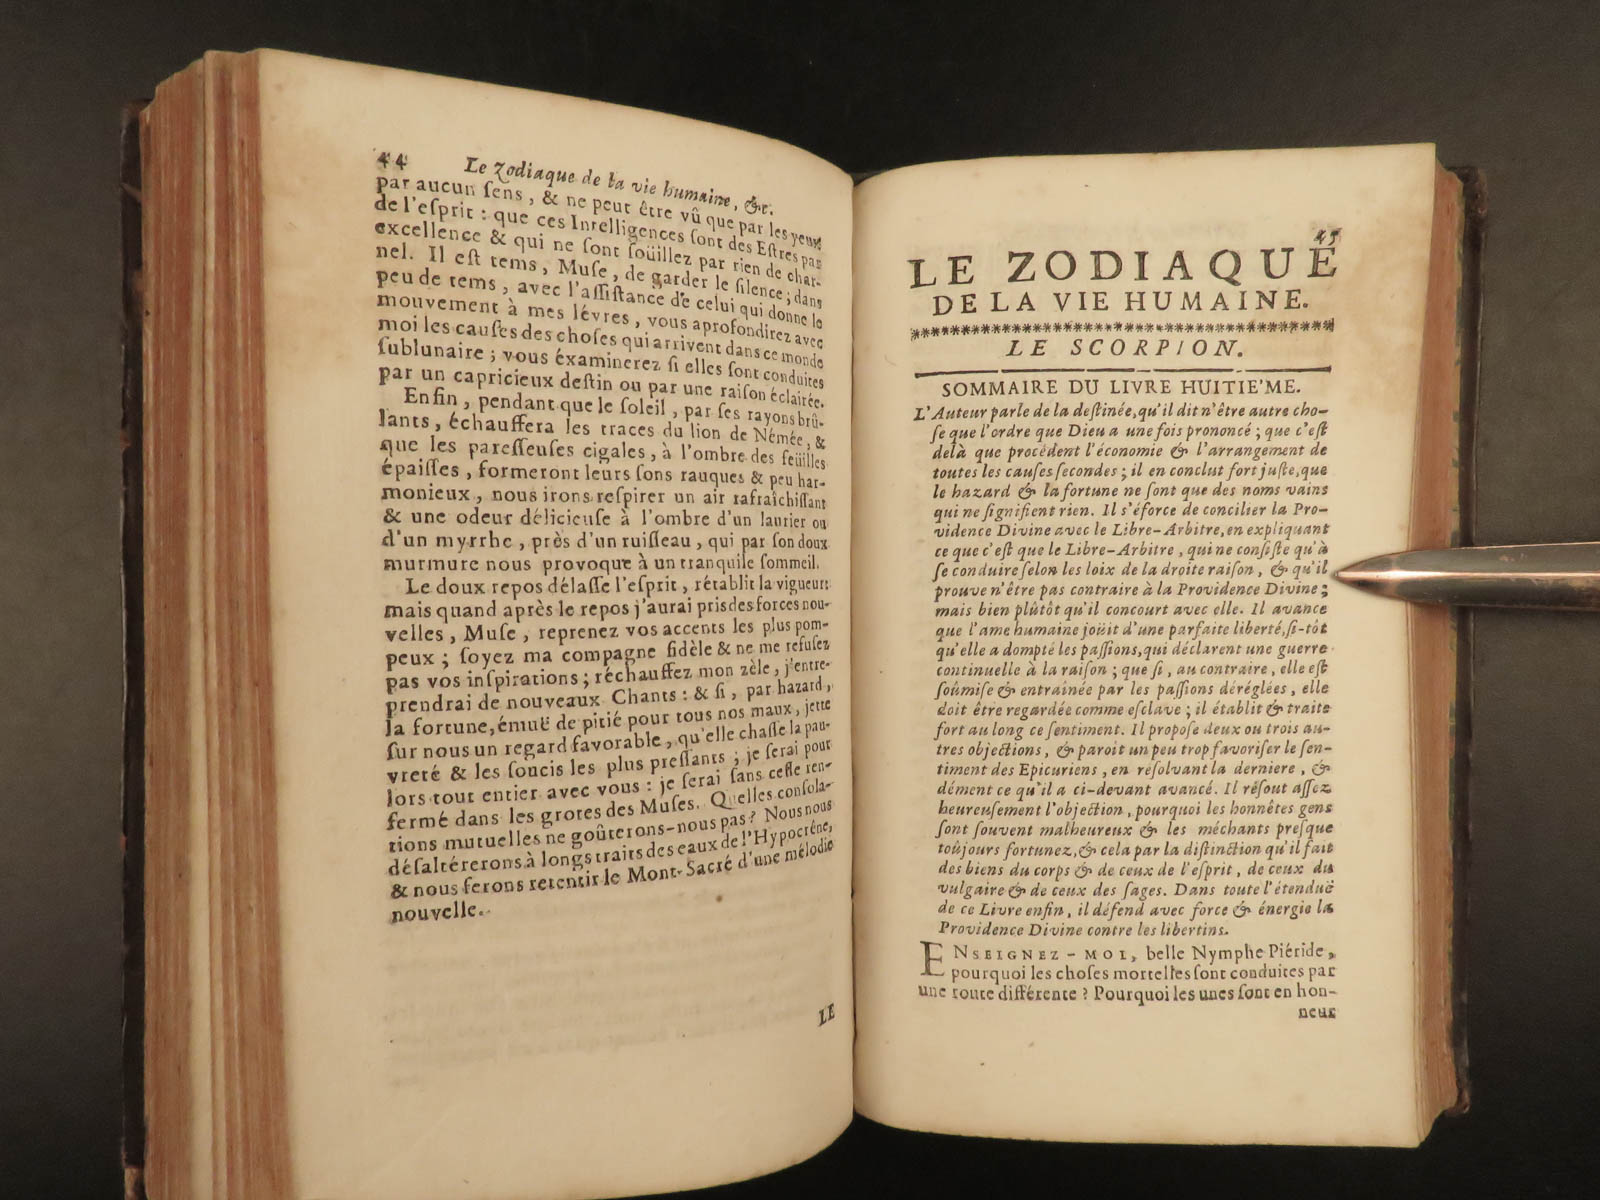 44 Le Zodiaque de la vie humaine, &c.
par aucun ſens, & ne peut être vû que par les yeux
de l'eſprit: que ces Intelligences ſont des Eſtres par
excellence & qui ne ſont ſoüillez par rien de char-
nel. Il eſt tems, Muſe, de garder le ſilence; dans
peu de tems, avec l'aſſiſtance de celui qui donne le
mouvement à mes lévres, vous aprofondirez avec
moi les cauſes des choſes qui arrivent dans ce monde
ſublunaire; vous éxaminerez ſi elles ſont conduites
par un capricieux deſtin ou par une raiſon éclairée.
Enfin, pendant que le ſoleil, par ſes rayons brû-
lants, échauffera les traces du lion de Némée, &
que les pareſſeuſes cigales, à l'ombre des feüilles
épaiſſes, formeront leurs ſons rauques & peu har-
monieux, nous irons reſpirer un air rafraîchiſſant
& une odeur délicieuſe à l'ombre d'un laurier ou
d'un myrrhe, près d'un ruiſſeau, qui par ſon doux
murmure nous provoque à un tranquile ſommeil.
Le doux repos délaſſe l'eſprit, rétablit la vigueur:
mais quand après le repos j'aurai pris des forces nou-
velles, Muſe, reprenez vos accents les plus pom-
peux; ſoyez ma compagne fidèle & ne me refuſez
pas vos inſpirations; réchauffez mon zèle, j'entre-
prendrai de nouveaux Chants: & ſi, par hazard,
la fortune, émuë de pitié pour tous nos maux, jette
ſur nous un regard favorable, qu'elle chaſſe la pau-
vreté & les ſoucis les plus preſſants; je ſerai pour
lors tout entier avec vous: je ſerai ſans ceſſe ren-
fermé dans les grotes des Muſes. Quelles conſola-
tions mutuelles ne goûterons-nous pas? Nous nous
déſaltérerons à longs traits des eaux de l'Hypocréne,
& nous ferons retentir le Mont-Sacré d'une mélodie
nouvelle.
LE
45
LE ZODIAQUE
DE LA VIE HUMAINE.
LE SCORPION.
SOMMAIRE DU LIVRE HUITIE'ME.
L'Auteur parle de la deſtinée, qu'il dit n'être autre cho-
ſe que l'ordre que Dieu a une fois prononcé; que c'eſt
delà que procédent l'économie & l'arrangement de
toutes les cauſes ſecondes; il en conclut fort juſte, que
le hazard & la fortune ne ſont que des noms vains
qui ne ſignifient rien. Il s'éforce de concilier la Pro-
vidence Divine avec le Libre-Arbitre, en expliquant
ce que c'eſt que le Libre-Arbitre, qui ne conſiſte qu'à
ſe conduire ſelon les loix de la droite raiſon, & qu'il
prouve n'être pas contraire à la Providence Divine;
mais bien plûtôt qu'il concourt avec elle. Il avance
que l'ame humaine joüit d'une parfaite liberté, ſi-tôt
qu'elle a dompté les paſſions, qui déclarent une guerre
continuelle à la raiſon; que ſi, au contraire, elle eſt
ſoûmiſe & entraînée par les paſſions déréglées, elle
doit être regardée comme eſclave; il établit & traite
fort au long ce ſentiment. Il propoſe deux ou trois au-
tres objections, & paroit un peu trop favoriſer le ſen-
timent des Epicuriens, en réſolvant la derniere, &
dément ce qu'il a ci-devant avancé. Il réſout aſſez
heureuſement l'objection, pourquoi les honnêtes gens
ſont ſouvent malheureux & les méchants preſque
toûjours fortunez, & cela par la diſtinction qu'il fait
des biens du corps & de ceux de l'eſprit, de ceux du
vulgaire & de ceux des ſages. Dans toute l'étenduë
de ce Livre enfin, il défend avec force & énergie la
Providence Divine contre les libertins.
ENSEIGNEZ-MOI, belle Nymphe Piéride,
pourquoi les choſes mortelles ſont conduites par
une route différente? Pourquoi les unes ſont en hon-
neur